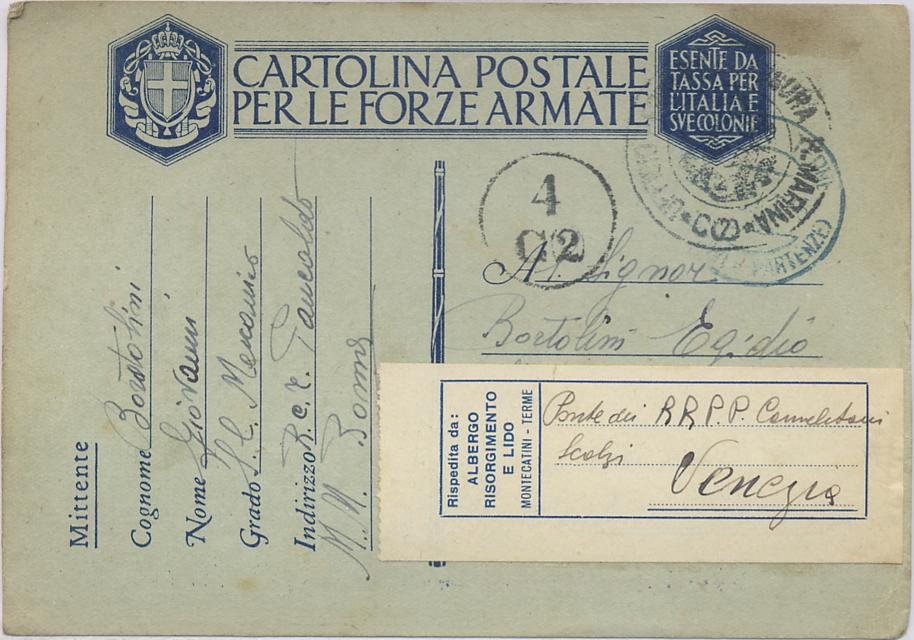 CARTOLINA POSTALE
PER LE FORZE ARMATE
ESENTE DA
TASSA PER
L'ITALIA E
SVE COLONIE
R. MARINA
C(2)
PARTENZE)
4
C2
Mittente
Cognome Bortolini
Nome Giovanni
Grado S. C. Meccanico
Indirizzo R. C. T. Pancaldo
M.M. Roma
Al Signor
Bortolini Egidio
Rispedita da:
ALBERGO
RISORGIMENTO
E LIDO
MONTECATINI - TERME
Ponte dei RR.P.P. Carmelitani
Scalzi
Venezia